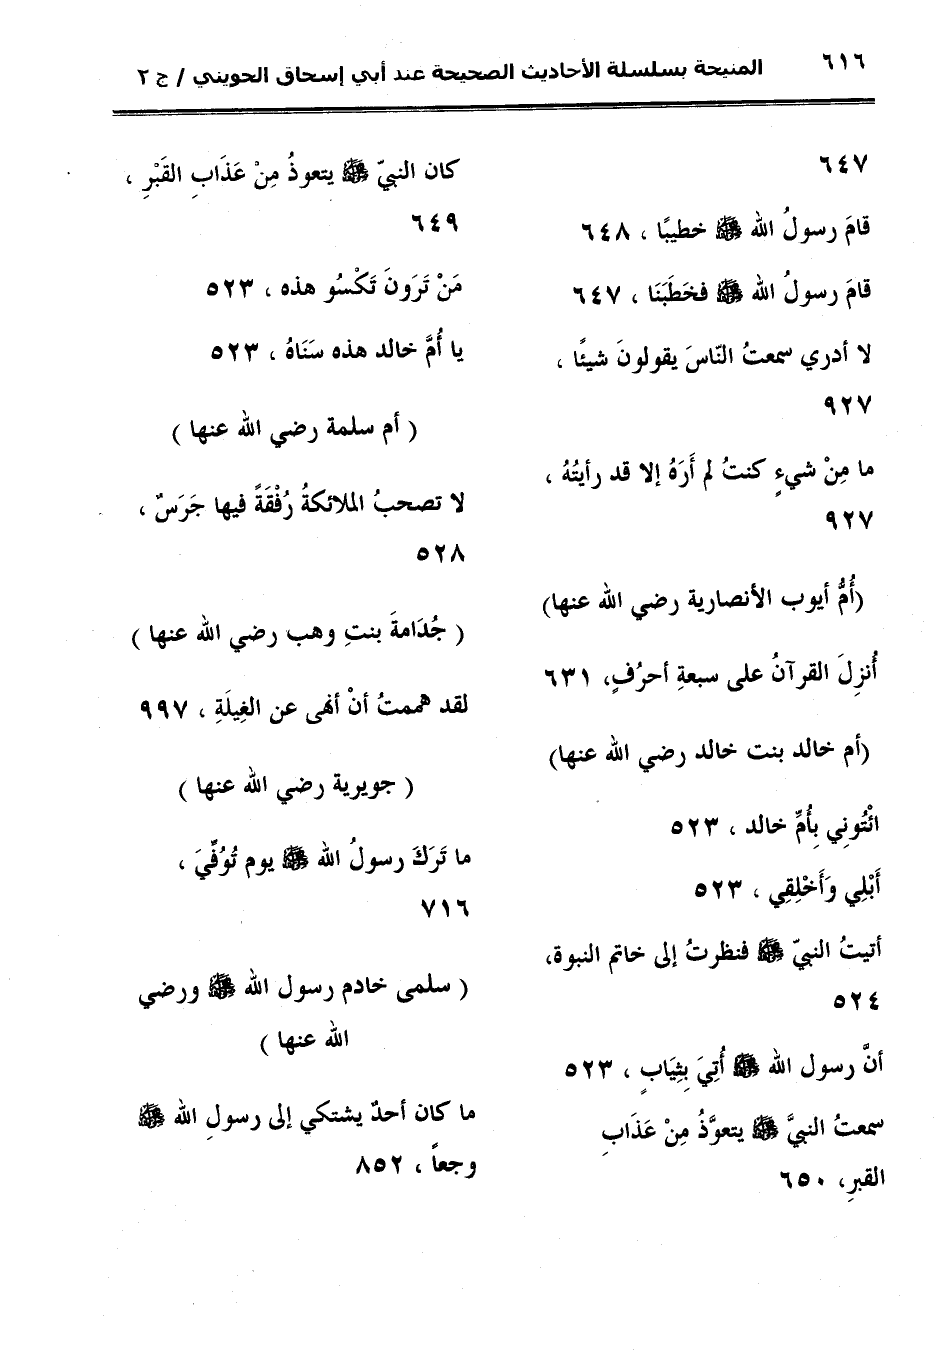 ٦١٦
المنيحة بسلسلة الأحاديث الصحيحة عند أبي إسحاق الحويني / ج ٢
٦٤٧
قامَ رسولُ الله ﷺ خطيبًا ، ٦٤٨
قامَ رسولُ الله ﷺ فخَطَبَنَا ، ٦٤٧
لا أدري سمعتُ النّاسَ يقولونَ شيئًا ،
٩٢٧
ما مِنْ شيءٍ كنتُ لم أَرَهُ إلا قد رأيتُهُ ،
٩٢٧
(أُمُّ أيوب الأنصارية رضي الله عنها)
أُنزِلَ القرآنُ على سبعةِ أحرُفٍ، ٦٣١
(أم خالد بنت خالد رضي الله عنها)
ائْتُوني بِأُمِّ خالد ، ٥٢٣
أَبْلِي وَأَخْلِقِي ، ٥٢٣
أتيتُ النبيّ ﷺ فنظرتُ إلى خاتم النبوة،
٥٢٤
أنَّ رسول الله ﷺ أُتِيَ بِثِيَابٍ ، ٥٢٣
سمعتُ النبيَّ ﷺ يتعوَّذُ مِنْ عَذَابِ
القبرِ، ٦٥٠
كان النبيّ ﷺ يتعوذُ مِنْ عَذَابِ القَبْرِ ،
٦٤٩
مَنْ تَرَونَ تَكْسُو هذه ، ٥٢٣
يا أُمَّ خالد هذه سَنَاهُ ، ٥٢٣
( أم سلمة رضي الله عنها )
لا تصحبُ الملائكةُ رُفْقَةً فيها جَرَسٌ ،
٥٢٨
( جُدَامةَ بنتِ وهب رضي الله عنها )
لقد هممتُ أنْ أنهى عن الغِيلَةِ ، ٩٩٧
( جويرية رضي الله عنها )
ما تَرَكَ رسولُ الله ﷺ يوم تُوُفِّيَ ،
٧١٦
( سلمى خادم رسول الله ﷺ ورضي
الله عنها )
ما كان أحدٌ يشتكي إلى رسولِ الله ﷺ
وجعاً ، ٨٥٢